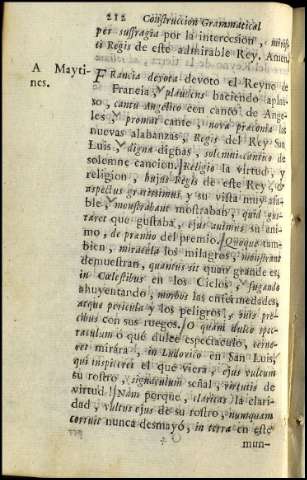 212 Construccion Grammatical
per suffragia por la intercession, hujus-
ti Regis de este admirable Rey. Amen.
A Mayti-
nes.
Francia devota devoto el Reyno de
Francia, plaudens haciendo aplau-
so, cantu Angelico con canto de Ange-
les, promat cante, nova praconia las
nuevas alabanzas, Regis del Rey San
Luis, digna dignas, solemni cantico de
solemne cancion. Religio la virtud, y
religion, hujus Regis de este Rey, &
aspectus gratissimus y su vista muy afa-
ble, monstrabant mostraban, quid gus-
taret que gustaba, ejus animus su ani-
mo, de præmio del premio. Quoque tam-
bien, miracula los milagros, monstrant
demuestran, quantus sit quan grande es,
in Cœlestibus en los Cielos, fugando
ahuyentando, morbus las enfermedades,
atque pericula y los peligros, suis pre-
cibus con sus ruegos. O quàm dulce spec-
taculum ò qué dulce espectaculo, cerne-
ret mirára, in Ludovico en San Luis,
qui inspiceret el que viera, ejus vultum
su rostro, signaculum señal, virtutis de
virtud! Nam porque, claritas la clari-
dad, vultus ejus de su rostro, nunquam
corruit nunca desmayó, in terra en este
mun-